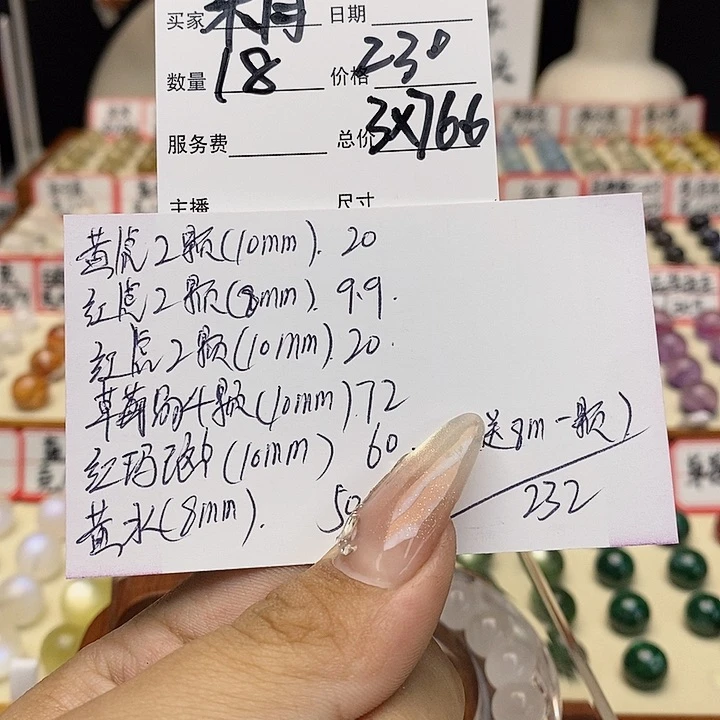 买家 日期
数量 18 价格 230
服务费 总价 3X766
主播 尺寸
黄虎2颗(10mm). 20
红虎2颗(8mm). 9.9.
红虎2颗(10mm). 20.
草莓晶4颗(10mm). 72
红玛瑙4(10mm) 60
送8m一颗)
黄水(8mm). 50
232